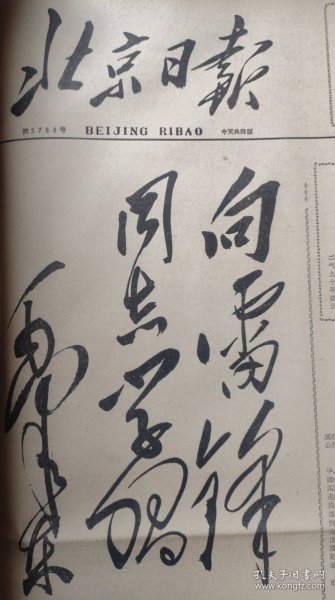 北京日報
第3786号 BEIJING RIBAO 今天共四版
向雷锋
同志学习
毛泽东
孔夫子旧书网
www.kongfz.com